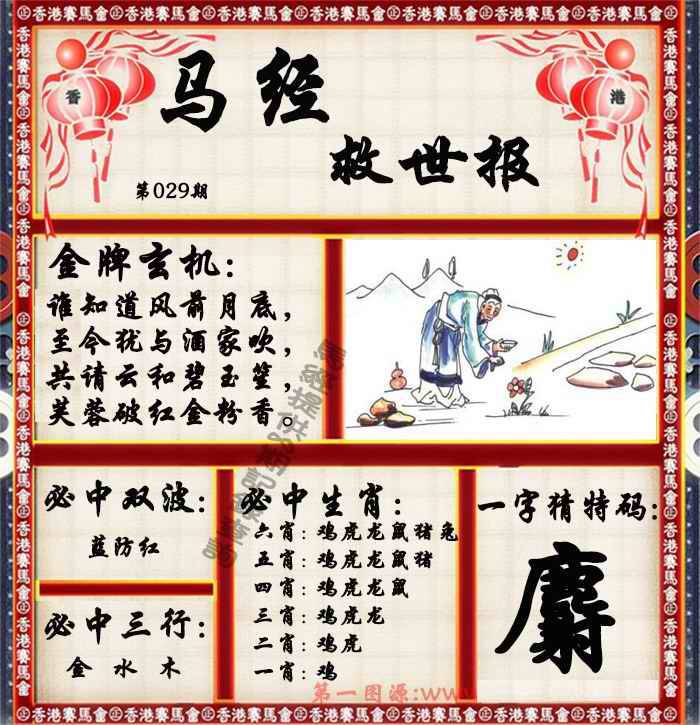 香港賽馬會
香 港
马经
救世报
第029期
金牌玄机:
谁知道风前月底,
至今犹与酒家吹,
共请云和碧玉笙,
芙蓉破红金粉香。
必中双波:
蓝防红
必中三行:
金 水 木
必中生肖:
六肖:鸡虎龙鼠猪兔
五肖:鸡虎龙鼠猪
四肖:鸡虎龙鼠
三肖:鸡虎龙
二肖:鸡虎
一肖:鸡
一字猜特码:
麝
第一图源:www